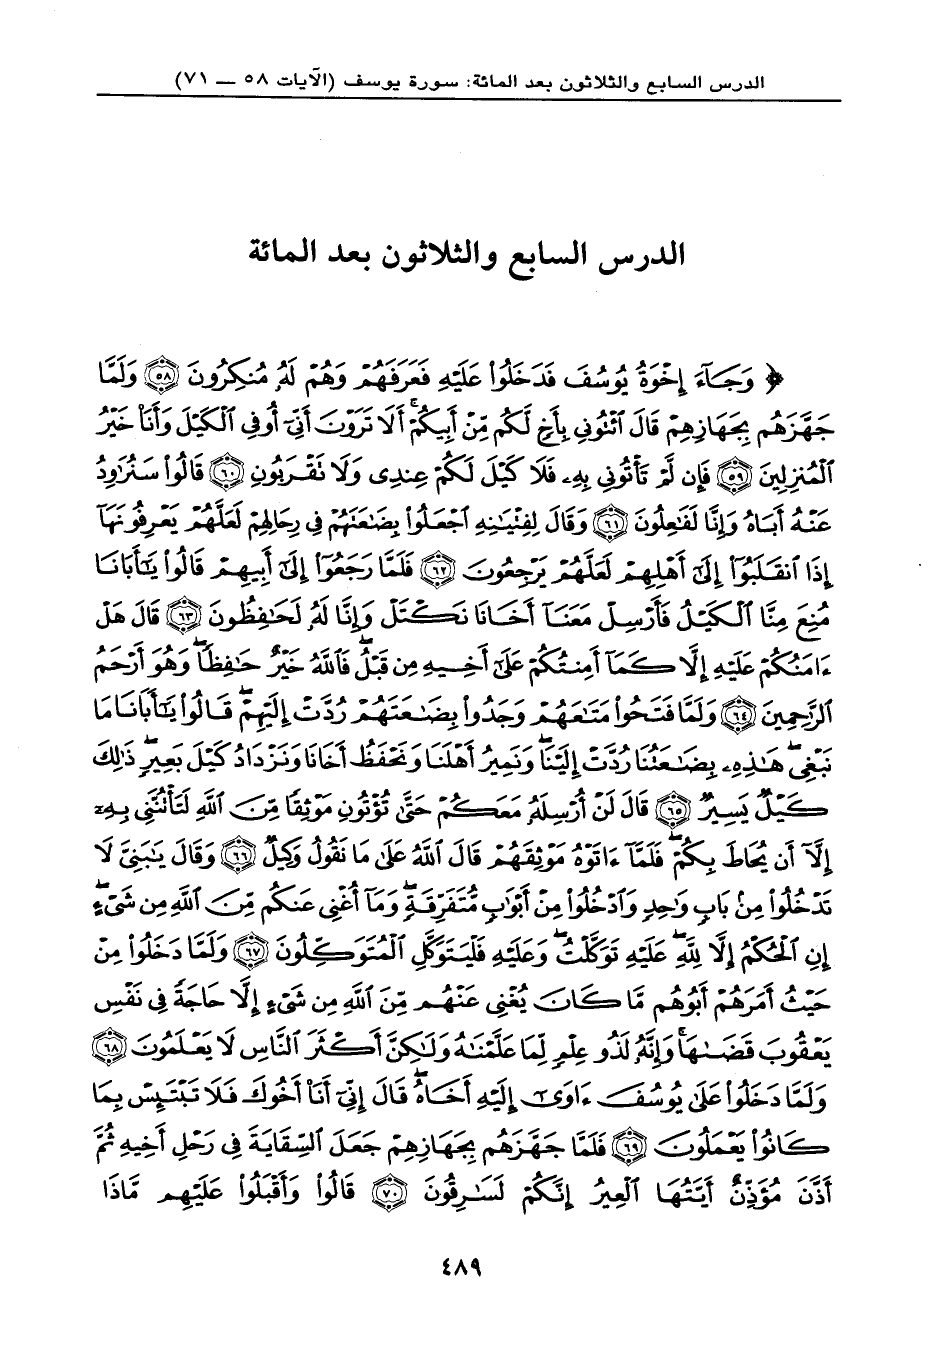 الدرس السابع والثلاثون بعد المائة: سورة يوسف (الآيات ٥٨ — ٧١)
الدرس السابع والثلاثون بعد المائة
﴿ وَجَآءَ إِخْوَةُ يُوسُفَ فَدَخَلُوا۟ عَلَيْهِ فَعَرَفَهُمْ وَهُمْ لَهُۥ مُنكِرُونَ ﴿٥٨﴾ وَلَمَّا
جَهَّزَهُم بِجَهَازِهِمْ قَالَ ٱئْتُونِى بِأَخٍ لَّكُم مِّنْ أَبِيكُمْ ۚ أَلَا تَرَوْنَ أَنِّىٓ أُوفِى ٱلْكَيْلَ وَأَنَا۠ خَيْرُ
ٱلْمُنزِلِينَ ﴿٥٩﴾ فَإِن لَّمْ تَأْتُونِى بِهِۦ فَلَا كَيْلَ لَكُمْ عِندِى وَلَا تَقْرَبُونِ ﴿٦٠﴾ قَالُوا۟ سَنُرَٰوِدُ
عَنْهُ أَبَاهُ وَإِنَّا لَفَٰعِلُونَ ﴿٦١﴾ وَقَالَ لِفِتْيَٰنِهِ ٱجْعَلُوا۟ بِضَٰعَتَهُمْ فِى رِحَالِهِمْ لَعَلَّهُمْ يَعْرِفُونَهَآ
إِذَا ٱنقَلَبُوٓا۟ إِلَىٰٓ أَهْلِهِمْ لَعَلَّهُمْ يَرْجِعُونَ ﴿٦٢﴾ فَلَمَّا رَجَعُوٓا۟ إِلَىٰٓ أَبِيهِمْ قَالُوا۟ يَٰٓأَبَانَا
مُنِعَ مِنَّا ٱلْكَيْلُ فَأَرْسِلْ مَعَنَآ أَخَانَا نَكْتَلْ وَإِنَّا لَهُۥ لَحَٰفِظُونَ ﴿٦٣﴾ قَالَ هَلْ
ءَامَنُكُمْ عَلَيْهِ إِلَّا كَمَآ أَمِنتُكُمْ عَلَىٰٓ أَخِيهِ مِن قَبْلُ ۖ فَٱللَّهُ خَيْرٌ حَٰفِظًا ۖ وَهُوَ أَرْحَمُ
ٱلرَّٰحِمِينَ ﴿٦٤﴾ وَلَمَّا فَتَحُوا۟ مَتَٰعَهُمْ وَجَدُوا۟ بِضَٰعَتَهُمْ رُدَّتْ إِلَيْهِمْ ۖ قَالُوا۟ يَٰٓأَبَانَا مَا
نَبْغِى ۖ هَٰذِهِۦ بِضَٰعَتُنَا رُدَّتْ إِلَيْنَا ۖ وَنَمِيرُ أَهْلَنَا وَنَحْفَظُ أَخَانَا وَنَزْدَادُ كَيْلَ بَعِيرٍ ۖ ذَٰلِكَ
كَيْلٌ يَسِيرٌ ﴿٦٥﴾ قَالَ لَنْ أُرْسِلَهُۥ مَعَكُمْ حَتَّىٰ تُؤْتُونِ مَوْثِقًا مِّنَ ٱللَّهِ لَتَأْتُنَّنِى بِهِۦٓ
إِلَّآ أَن يُحَاطَ بِكُمْ ۖ فَلَمَّآ ءَاتَوْهُ مَوْثِقَهُمْ قَالَ ٱللَّهُ عَلَىٰ مَا نَقُولُ وَكِيلٌ ﴿٦٦﴾ وَقَالَ يَٰبَنِىَّ لَا
تَدْخُلُوا۟ مِنۢ بَابٍ وَٰحِدٍ وَٱدْخُلُوا۟ مِنْ أَبْوَٰبٍ مُّتَفَرِّقَةٍ ۖ وَمَآ أُغْنِى عَنكُم مِّنَ ٱللَّهِ مِن شَىْءٍ ۖ
إِنِ ٱلْحُكْمُ إِلَّا لِلَّهِ ۖ عَلَيْهِ تَوَكَّلْتُ ۖ وَعَلَيْهِ فَلْيَتَوَكَّلِ ٱلْمُتَوَكِّلُونَ ﴿٦٧﴾ وَلَمَّا دَخَلُوا۟ مِنْ
حَيْثُ أَمَرَهُمْ أَبُوهُم مَّا كَانَ يُغْنِى عَنْهُم مِّنَ ٱللَّهِ مِن شَىْءٍ إِلَّا حَاجَةً فِى نَفْسِ
يَعْقُوبَ قَضَىٰهَا ۚ وَإِنَّهُۥ لَذُو عِلْمٍ لِّمَا عَلَّمْنَٰهُ وَلَٰكِنَّ أَكْثَرَ ٱلنَّاسِ لَا يَعْلَمُونَ ﴿٦٨﴾
وَلَمَّا دَخَلُوا۟ عَلَىٰ يُوسُفَ ءَاوَىٰٓ إِلَيْهِ أَخَاهُ ۖ قَالَ إِنِّىٓ أَنَا۠ أَخُوكَ فَلَا تَبْتَئِسْ بِمَا
كَانُوا۟ يَعْمَلُونَ ﴿٦٩﴾ فَلَمَّا جَهَّزَهُم بِجَهَازِهِمْ جَعَلَ ٱلسِّقَايَةَ فِى رَحْلِ أَخِيهِ ثُمَّ
أَذَّنَ مُؤَذِّنٌ أَيَّتُهَا ٱلْعِيرُ إِنَّكُمْ لَسَٰرِقُونَ ﴿٧٠﴾ قَالُوا۟ وَأَقْبَلُوا۟ عَلَيْهِم مَّاذَا
٤٨٩